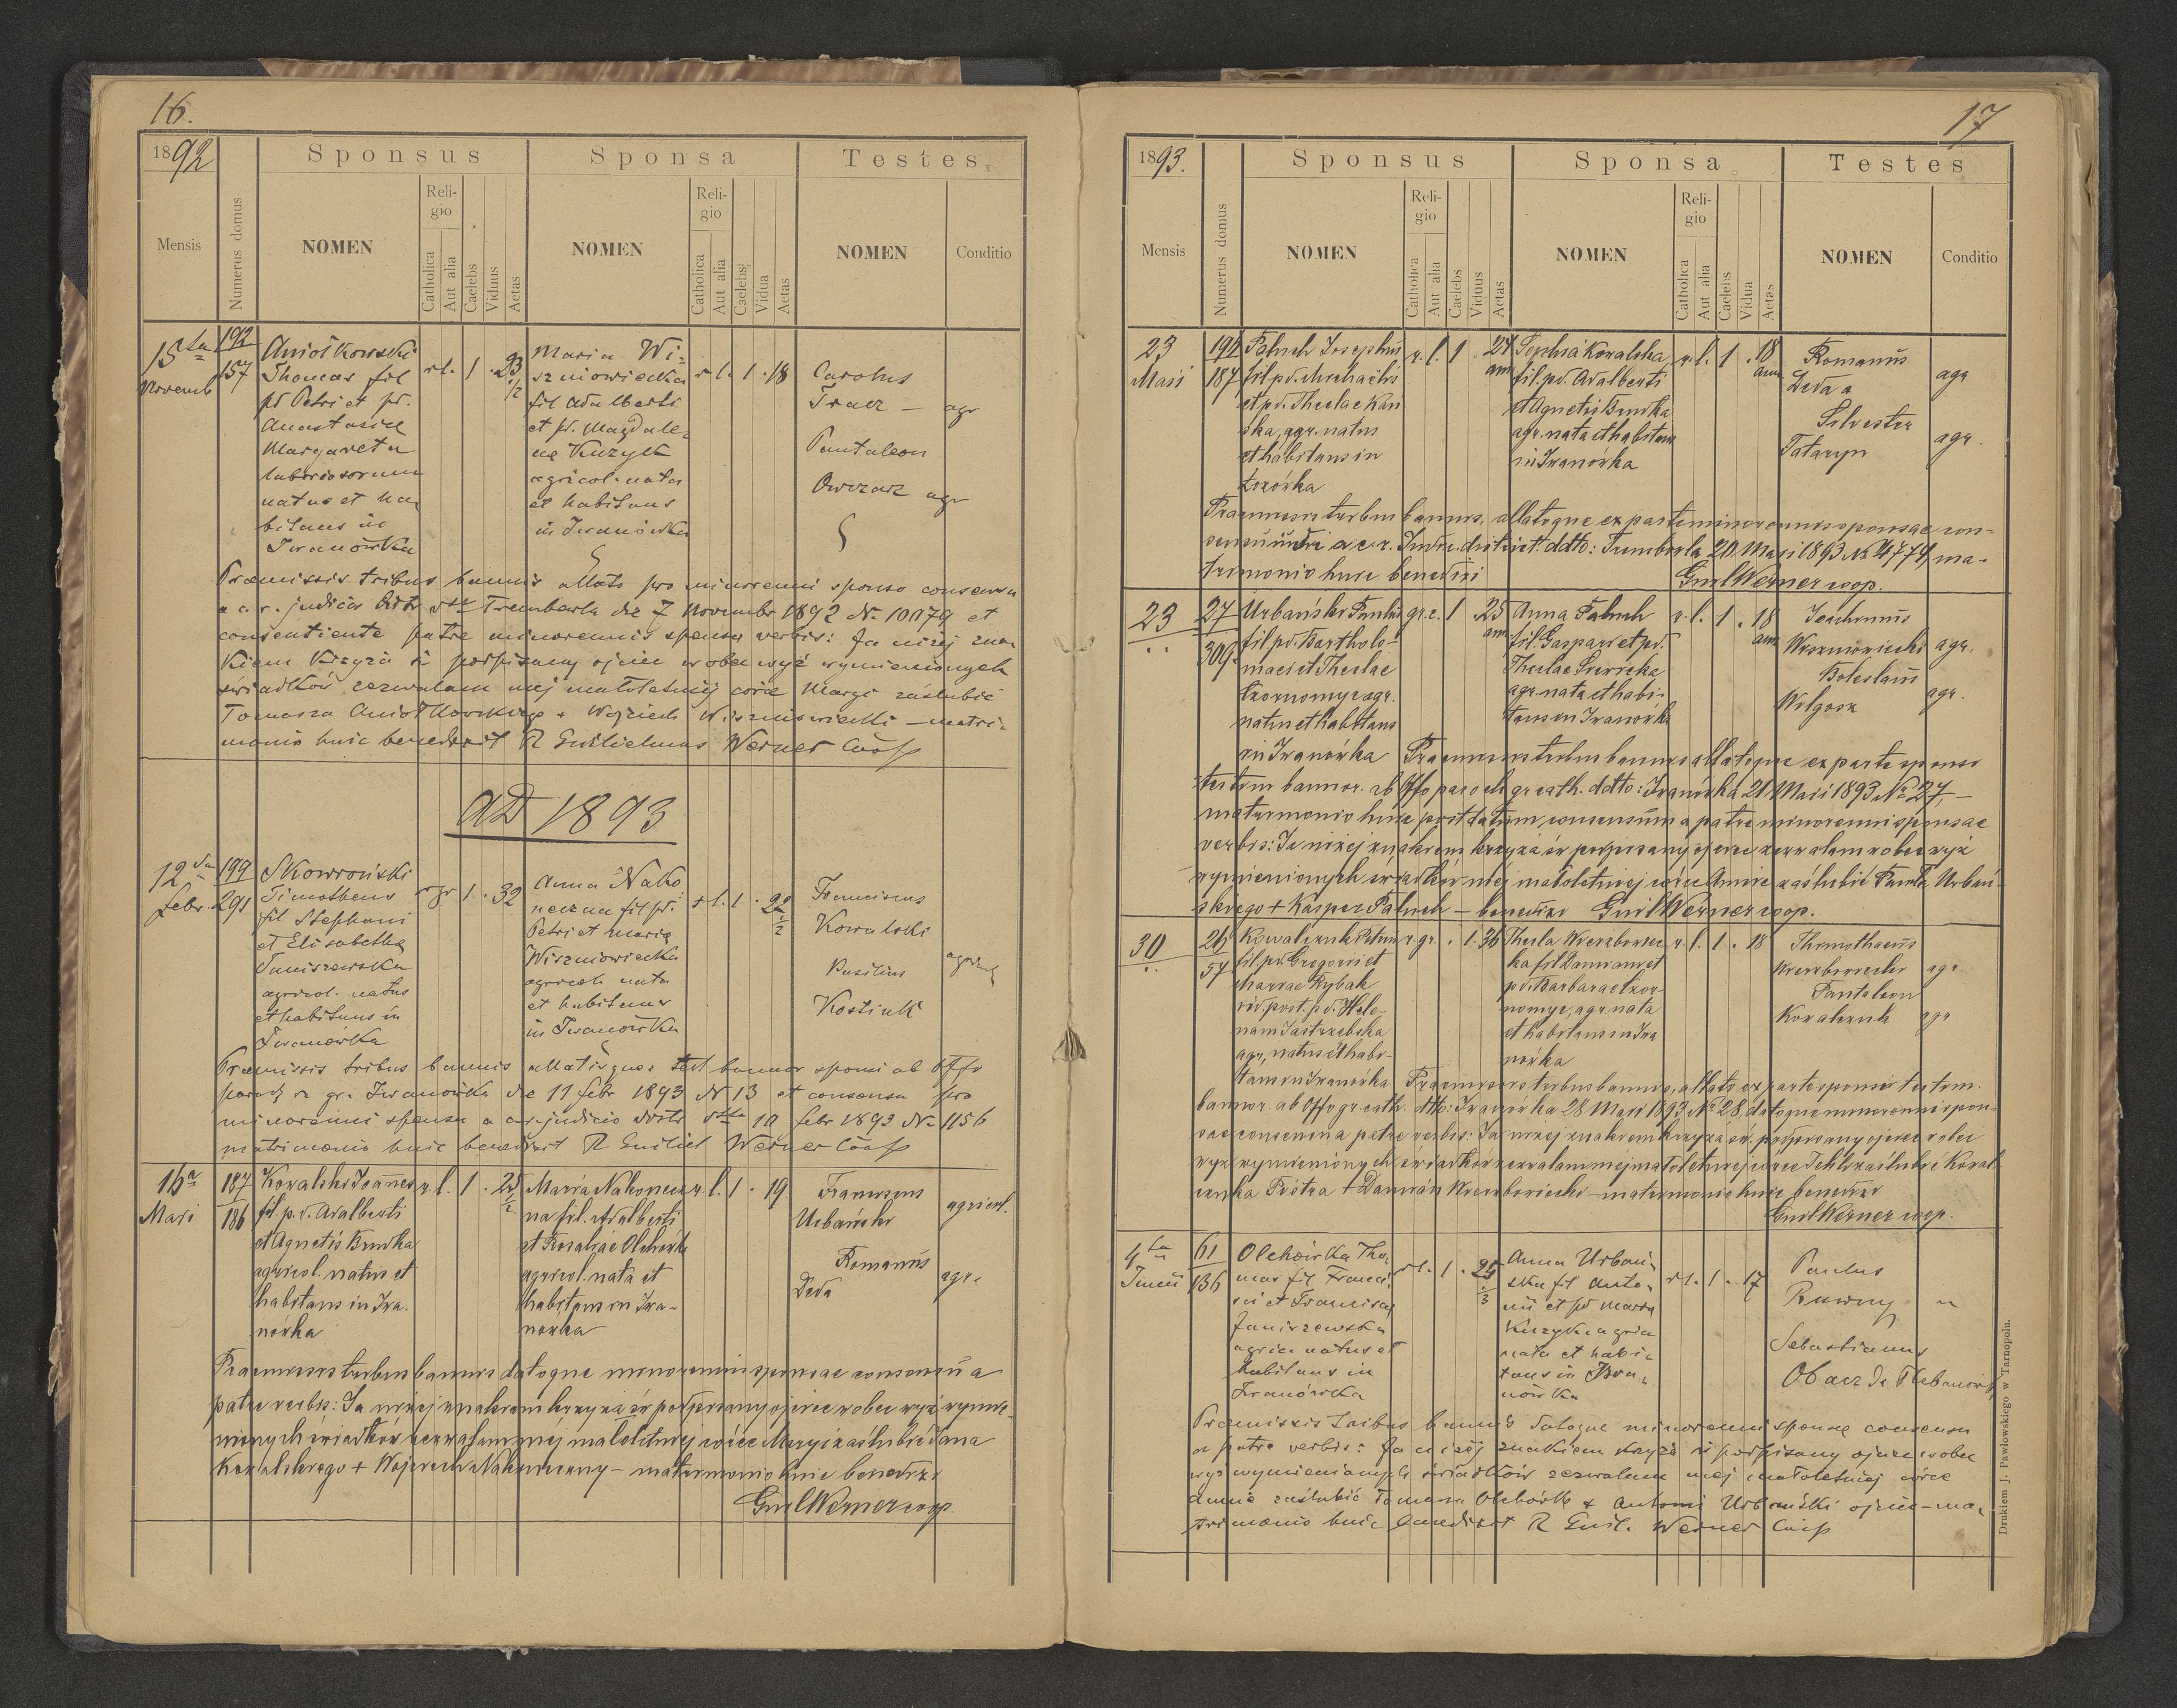 16.
1892
Sponsus
Sponsa
Testes.
Mensis
Numerus domus
NOMEN
Religio
Catholica
Aut alia
Caelebs
Viduus
Aetas
NOMEN
Religio
Catholica
Aut alia
Caelebs
Vidua
Aetas
NOMEN
Conditio
15ta
Novemb
192
157
Aniołkowski
Thomas fil
pd Petri et pd.
Anastasiae
Margareta
laboriosorum
natus et ha
bitans in
Iwanówka
rl. 1 . 23
1/2
Maria Wi-
szniowiecka
fil Adalberti
et pd. Magdale-
nę Kuzyk
agricol. nata
et habitans
in Iwanówka
r l. 1 . 18
Carolus
Tracz — agr
Pantaleon
Owczar agr
Praemissis tribus bannis allato pro minorenni sponso consensu
a c. r. judicio Distr dtto Trembowla de 7 Novembr 1892 N. 10079 et
consentiente patre minorennis sponsa verbis: Ja niżej zna
kiem krzyża św podpisany ojciec w obec wyż wymienionych
świadków zezwalam mej małoletniej córce Maryi zaślubić
Tomasza Aniołkowskiego + Wojciech Wiszniowiecki — matri-
monio huic benedixit R Guilielmus Werner Coop
AD 1893
12da
Febr.
199
291
Skowroński
Timotheus
fil Stephani
et Elisabetha
Taniszewska
agricol. natus
et habitans in
Iwanówka
r gr 1 . 32
Anna Nako
neczna fil pd.
Petri et Marię
Wiszniowiecka
agricol. nata
et habitans
in Iwanówka
r l. 1 . 22
1/2
Franciscus
Kowalski
Basilius
Kostiuk
Praemissis tribus bannis allatisque test bannor sponsi ab Offo
paroch r. gr. Iwanówka de 11 febr 1893 N 13 et consensu pro
minorenni sponsa a c.r. judicio distr dtto 10 febr 1893 N. 1156
matrimonio huic benedixit R Guiliel Werner Coop
16a
Maji
187
186
Kowalski Joannes
fil. p.d. Adalberti
et Agnetis Brudka
agricol. natus et
habitans in Iwa-
nówka
r. l. 1 . 25
1/2
Maria Nakonecz
na fil. Adalberti
et Rosaliae Olchówka
agricol. nata et
habitans in Iwa-
nówka
r. l. 1 . 19
Franciscus
Urbański
agricol.
Romanus
Deda
agr.
Praemissis tribus bannis datoque minorennis sponsae consensu a
patre verbis: Ja niżej znakiem krzyża św podpisany ojciec w obec wyż wymie-
nionych świadków zezwalam mej małoletniej córce Maryi zaślubić Jana
Kowalskiego + Wojciech Nakoneczny — matrimonio huic benedixi
Guil Werner coop
17
1893.
Sponsus
Sponsa
Testes
Mensis
Numerus domus
NOMEN
Religio
Catholica
Aut alia
Caelebs
Viduus
Aetas
NOMEN
Religio
Catholica
Aut alia
Caelebs
Vidua
Aetas
NOMEN
Conditio
23
Maii
194
187
Paluch Josephus
fil. pd. Michaelis
et pd. Theclae Kań
ska, agr. natus
et habitans in
Łozówka
r. l. 1 . 24
ann
Sophia Kowalska
fil. pd. Adalberti
et Agnetis Brudka
agr. nata et habitans
in Iwanówka
r. l. 1 . 18
ann
Romanus
Deda
agr
Silvester
Tataryn
agr.
Praemissis tribus bannis, allatoque ex parte minorennis sponsae con-
sensu a c.r. Judic. district. ddto: Trembowla 20 Maji 1893 N 4774, ma-
trimonio huic benedixi
Guil Werner coop.
23
27
309.
Urbański Paulus
fil. pd. Bartholo-
maei et Theclae
Czornomyz agr.
natus et habitans
in Iwanówka
gr. c. 1 . 25
ann
Anna Paluch
fil. Gaspari et pd.
Theclae
agr. nata et habi-
tans in Iwanówka
r. l. 1 . 18
ann
Joachimus
Wiszniowiecki
agr.
Boleslaus
Wilgosz
agr.
Praemissis tribus bannis allatoque ex parte sponsi
testim bannor. ab Offo paroch gr cath. ddto: Iwanówka 21 Maji 1893 No 27, —
matrimonio huic post datum consensum a patre minorennis sponsae
verbis: Ja niżej znakiem krzyża św podpisany ojciec zezwalam w obec wyż
wymienionych świadków mej małoletniej córce Annie zaślubić Pawła Urbań-
skiego + Kasper Paluch — benedixi Guil Werner coop.
30
26
57
Kowalczuk Petrus
fil. pd. Gregorii et
Mariae Rybak
vid. post. pd. Hele-
nam Jastrzebska
agr, natus et habi-
tans in Iwanówka
r. gr. . 1. 36
Thecla Wierzbowiec
ka fil Damiani et
pd. Barbarae Czor-
nomyz, agr. nata
et habitans in Iwa
nówka
r. l. 1 . 18
Thimothaeus
Wierzbowiecki
agr.
Pantaleon
Kowalczuk
agr
Praemissis tribus bannis, allato ex parte sponsi testim.
bannor. ab Offo gr. cath. ddto: Iwanówka 28 Maji 1893 No 28, datoque minorenni spon-
sae consensu a patre verbis: Ja niżej znakiem krzyża św. podpisany ojciec w obec
wyż wymienionych świadków zezwalam mej małoletniej córce Tekli zaślubić Kowal
czuka Piotra + Damian Wierzbowiecki — matrimonio huic benedixi
Guil Werner coop.
4ta
Junii
61
136
Olchówka Tho-
mas fil Franci-
sci et Francisca
Janiszewska
agric natus et
habitans in
Iwanówka
r l. 1 . 25
1/3
Anna Urbań-
ska fil Anto-
nii et pd Maria
Kuzyk agric
nata et habi-
tans in Iwa-
nówka
r l. 1 . 17
Paulus
Sebastianus
Obacz de Plebanówka
Praemissis tribus bannis datoque minorenni sponsę consensu
a patre verbis: Ja niżej znakiem krzyża ś podpisany ojciec w obec
wyż wymienionych świadków zezwalam mej małoletniej córce
Annie zaślubić Tomasza Olchówk + Antoni Urbański ojciec — ma-
trimonio huic benedixit R Guil. Werner Coop
Drukiem J. Pawłowskiego w Tarnopolu.